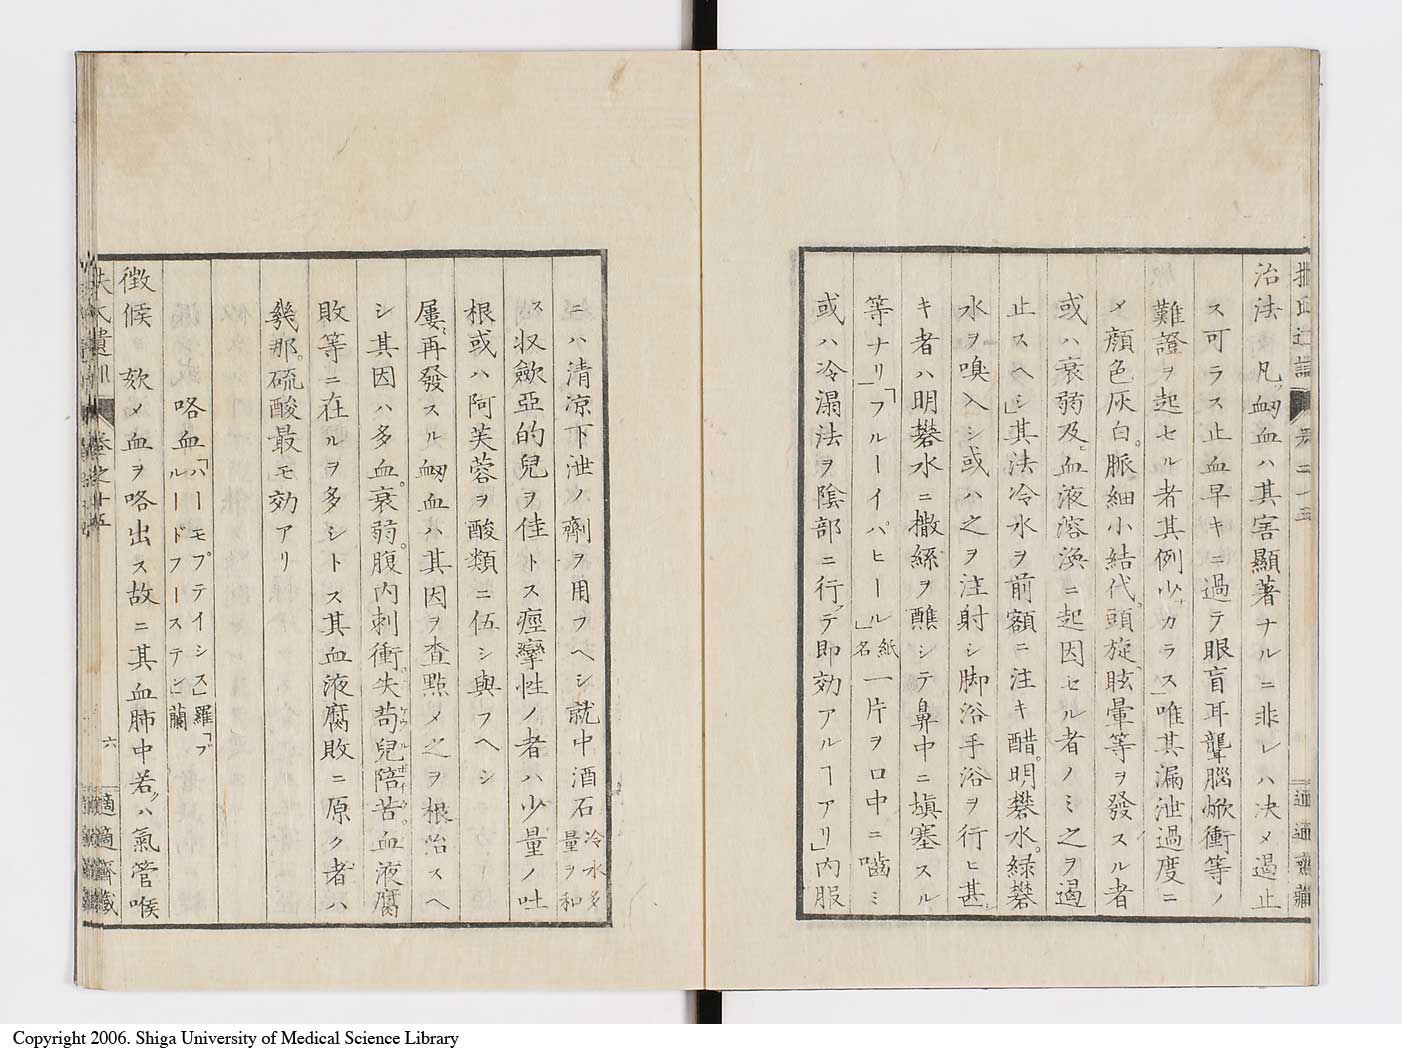 治法 凡衂血ハ其害顯著ナルニ非レハ决メ遏止
ス可ラス止血早キニ過テ眼盲耳聾腦焮衝等ノ
難證ヲ起セル者其例少カラス唯其漏泄過度ニ
メ顔色灰白脈細小結代頭旋眩暈等ヲ發スル者
或ハ衰弱及ヒ血液溶渙ニ起因セル者ノミ之ヲ遏
止スヘシ」其法冷水ヲ前額ニ注キ醋明礬水緑礬
水ヲ嗅入シ或ハ之ヲ注射シ脚浴手浴ヲ行ヒ甚
キ者ハ明礬水ニ撒絲ヲ醮シテ鼻中ニ塡塞スル
等ナリ」「フルーイパヒール」紙名一片ヲ口中ニ嚙ミ
或ハ冷溻法ヲ陰部ニ行テ即効アルヿアリ」内服
ニハ清凉下泄ノ劑ヲ用フヘシ就中酒石冷水多量ヲ和
ス収斂亞的兒ヲ佳トス痙攣性ノ者ハ少量ノ吐
根或ハ阿芙蓉ヲ酸類ニ伍シ與フヘシ
屢再發スル衂血ハ其因ヲ査點メ之ヲ根治スヘ
シ其因ハ多血衰弱腹内刺衝失苟兒陪苦血液腐
敗等ニ在ルヲ多シトス其血液腐敗ニ原ク者ハ
幾那硫酸最モ効アリ
咯血「ハーモプテイシス」羅「ブルードフーステン」蘭
徴候 欬メ血ヲ咯出ス故ニ其血肺中若クハ氣管喉
扶氏遺訓 卷之十五 六 適適齋藏
Copyright 2006. Shiga University of Medical Science Library